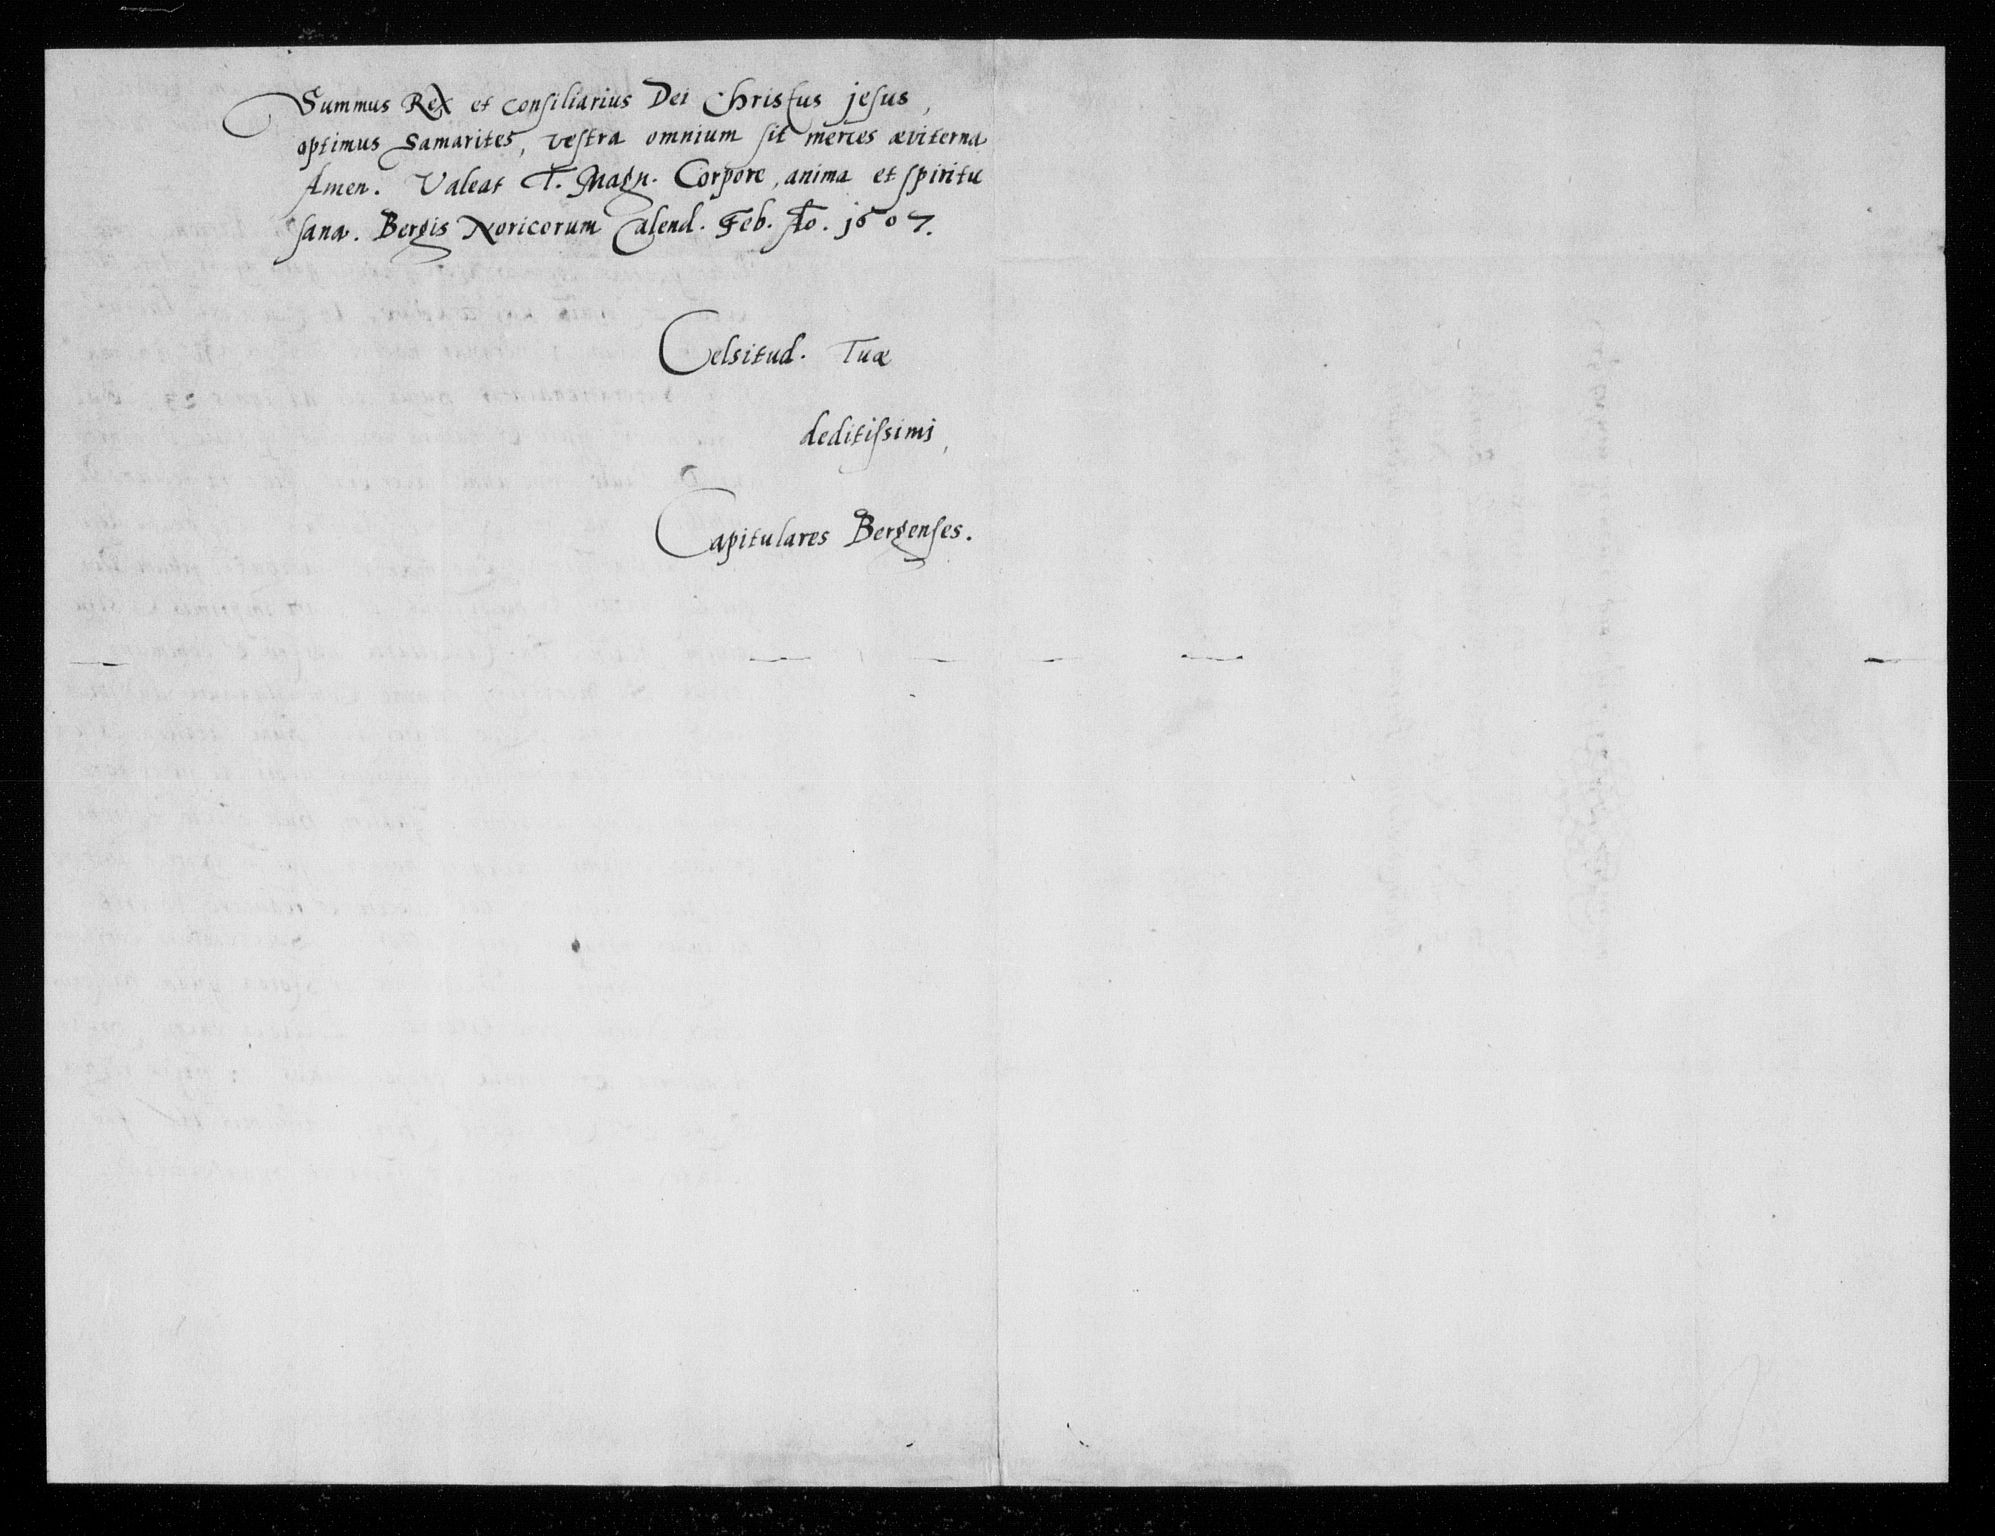 Summus Rex et consiliarius Dei Christus jesus,
optimus Samarites, vestra omnium sit merces æviterna
Amen. Valeat T. Magn. Corpore, anima et spiritu
sana. Bergis Noricorum Calend. Feb. Ao. 1607.
Celsitud. Tuæ
deditissimi,
Capitulares Bergenses.